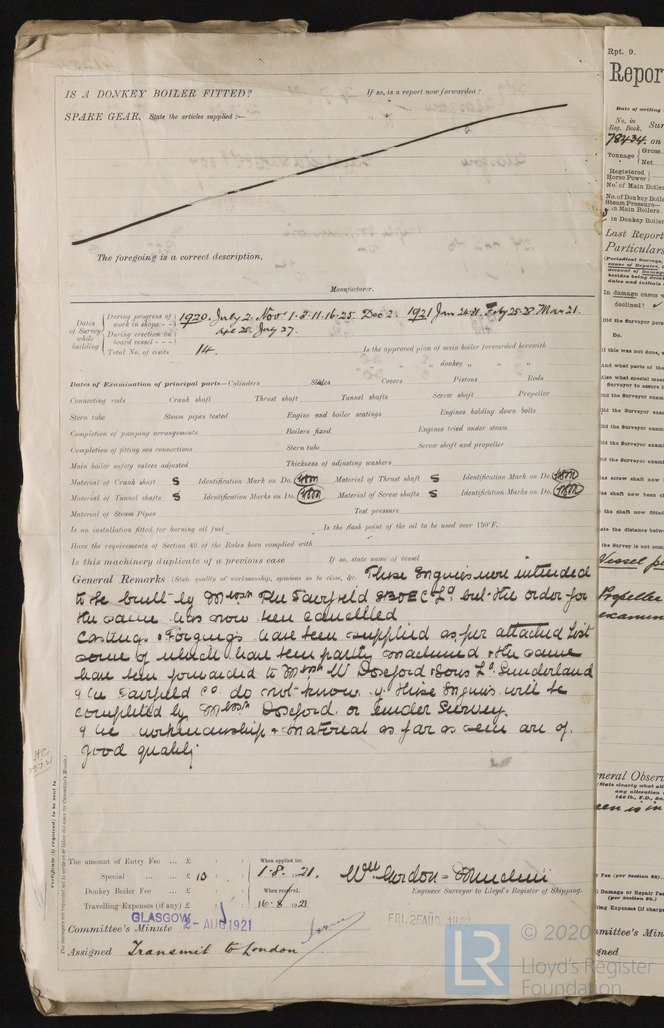 IS A DONKEY BOILER FITTED? If so, is a report now forwarded?
SPARE GEAR. State the articles supplied:—
The foregoing is a correct description,
Manufacturer.
Dates of Survey while building
During progress of work in shops - - 1920. July 2. Nov. 1. 8. 11. 16. 25. Dec 2. 1921 Jan 24. 31. Feby 25. 28 Mar 21.
During erection on board vessel - - - Apl 25. July 27.
Total No. of visits 14. Is the approved plan of main boiler forwarded herewith
" " donkey " " "
Dates of Examination of principal parts—Cylinders Slides Covers Pistons Rods
Connecting rods Crank shaft Thrust shaft Tunnel shafts Screw shaft Propeller
Stern tube Steam pipes tested Engine and boiler seatings Engines holding down bolts
Completion of pumping arrangements Boilers fixed Engines tried under steam
Completion of fitting sea connections Stern tube Screw shaft and propeller
Main boiler safety valves adjusted Thickness of adjusting washers
Material of Crank shaft S Identification Mark on Do. Material of Thrust shaft S Identification Mark on Do.
Material of Tunnel shafts S Identification Marks on Do. Material of Screw shafts S Identification Marks on Do.
Material of Steam Pipes Test pressure
Is an installation fitted for burning oil fuel Is the flash point of the oil to be used over 150°F.
Have the requirements of Section 49 of the Rules been complied with
Is this machinery duplicate of a previous case If so, state name of vessel
General Remarks (State quality of workmanship, opinions as to class, &c. These Engines were intended
to be built by Messrs The Fairfield SB & E C Ld. but the order for
the same has now been cancelled
Castings & Forgings have been supplied as per attached list
some of which have been partly machined & the same
have been forwarded to Messrs W Doxford & Sons Ld. Sunderland
The Fairfield Co. do not know if these Engines will be
completed by Messrs Doxford. or under Survey.
The workmanship & material as far as seen are of
good quality
The amount of Entry Fee ... £ : :
Special ... ... £ 10 : :
Donkey Boiler Fee ... ... £ : :
Travelling Expenses (if any) £ : :
When applied for, 1.8.1921.
When received, 16.8.1921
Wm Gordon-
Engineer Surveyor to Lloyd's Register of Shipping.
Committee's Minute GLASGOW 2-AUG 1921
FRI. 25 AUG. 1922
Assigned Transmit to London
Rpt. 9.
Repor
Date of writing
No. in Reg. Book. Sur
78434. on
Tonnage Gross Net
Registered Horse Power
No. of Main Boilers
No. of Donkey Boile
Steam Pressure—
in Main Boilers
in Donkey Boiler
Last Report
Particulars
(Periodical Surveys,
In damage cases
declined?
Did the Surveyor
Do.
If this was not done,
And what parts of the
Surveyor to
Did the Surveyor exam
Did the Surveyor exam
Did the Surveyor exam
Did the Surveyor exam
Vessel
Propeller
examin
neral Observ
(State clearly what
any alteration
een is in
Fee (per Section
Damage or Repair Fee
(per Section
ling Expenses (if
mmittee's Min
gned
© 2020
LR
Lloyd's Register
Foundation